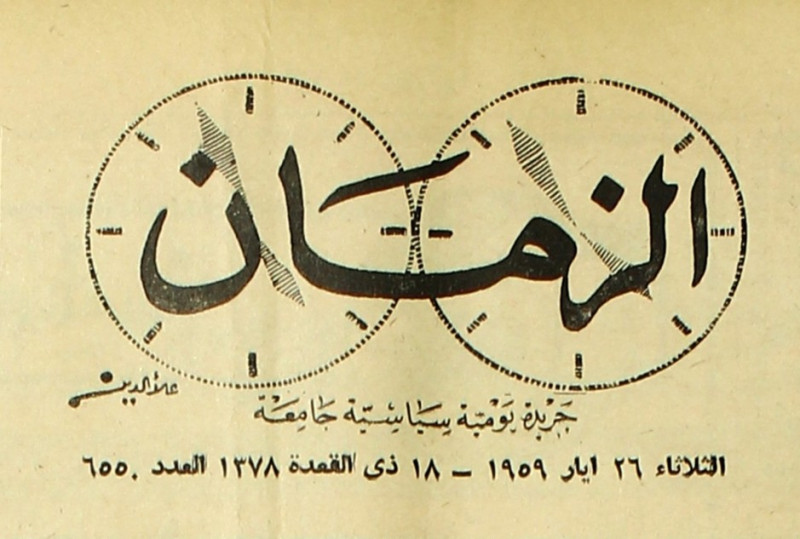 الزمان
علاءالدين
جريدة يومية سياسية جامعة
الثلاثاء ٢٦ ايار ١٩٥٩ – ١٨ ذى القعدة ١٣٧٨ العدد ٦٥٥٠